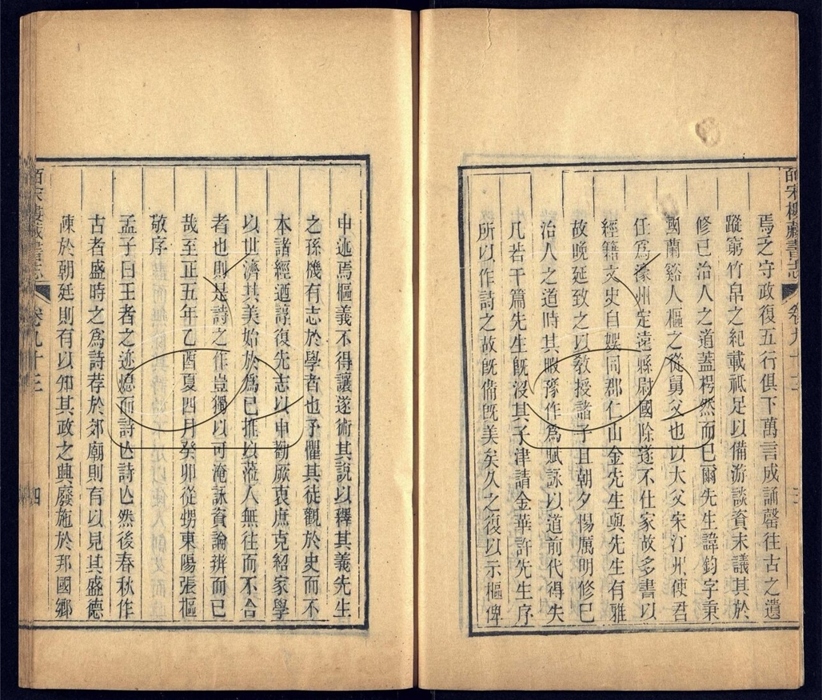 焉之守政復五行俱下萬言成誦罄往古之遺
蹤窮竹帛之紀載祗足以備游談資末議其於
修已治人之道蓋枵然而已爾先生諱鈞字秉
國蘭谿人樞之從舅父也以大父宋汀州使君
任爲濠州定遠縣尉國除遂不仕家故多書以
經籍文史自娛同郡仁山金先生與先生有雅
故晚延致之以敎授諸子且朝夕揚厲明修已
治人之道時其暇豫作爲賦詠以道前代得失
凡若干篇先生旣沒其子津請金華許先生序
所以作詩之故旣備旣美矣久之復以示樞俾
皕宋樓藏書志
卷九十三
三
申述焉樞義不得讓遂術其說以釋其義先生
之孫機有志於學者也予懼其徒觀於史而不
本諸經迺諄復先志以申勸厥衷庶克紹家學
以世濟其美始於爲已推以蒞人無往而不合
者也則是詩之作豈獨以可淹詠資論辨而已
哉至正五年乙酉夏四月癸卯從甥東陽張樞
敬序
孟子曰王者之迹熄而詩亾詩亾然後春秋作
古者盛時之爲詩荐於郊廟則有以見其盛德
陳於朝廷則有以知其政之興廢施於邦國鄉
皕宋樓藏書志
卷九十三
四